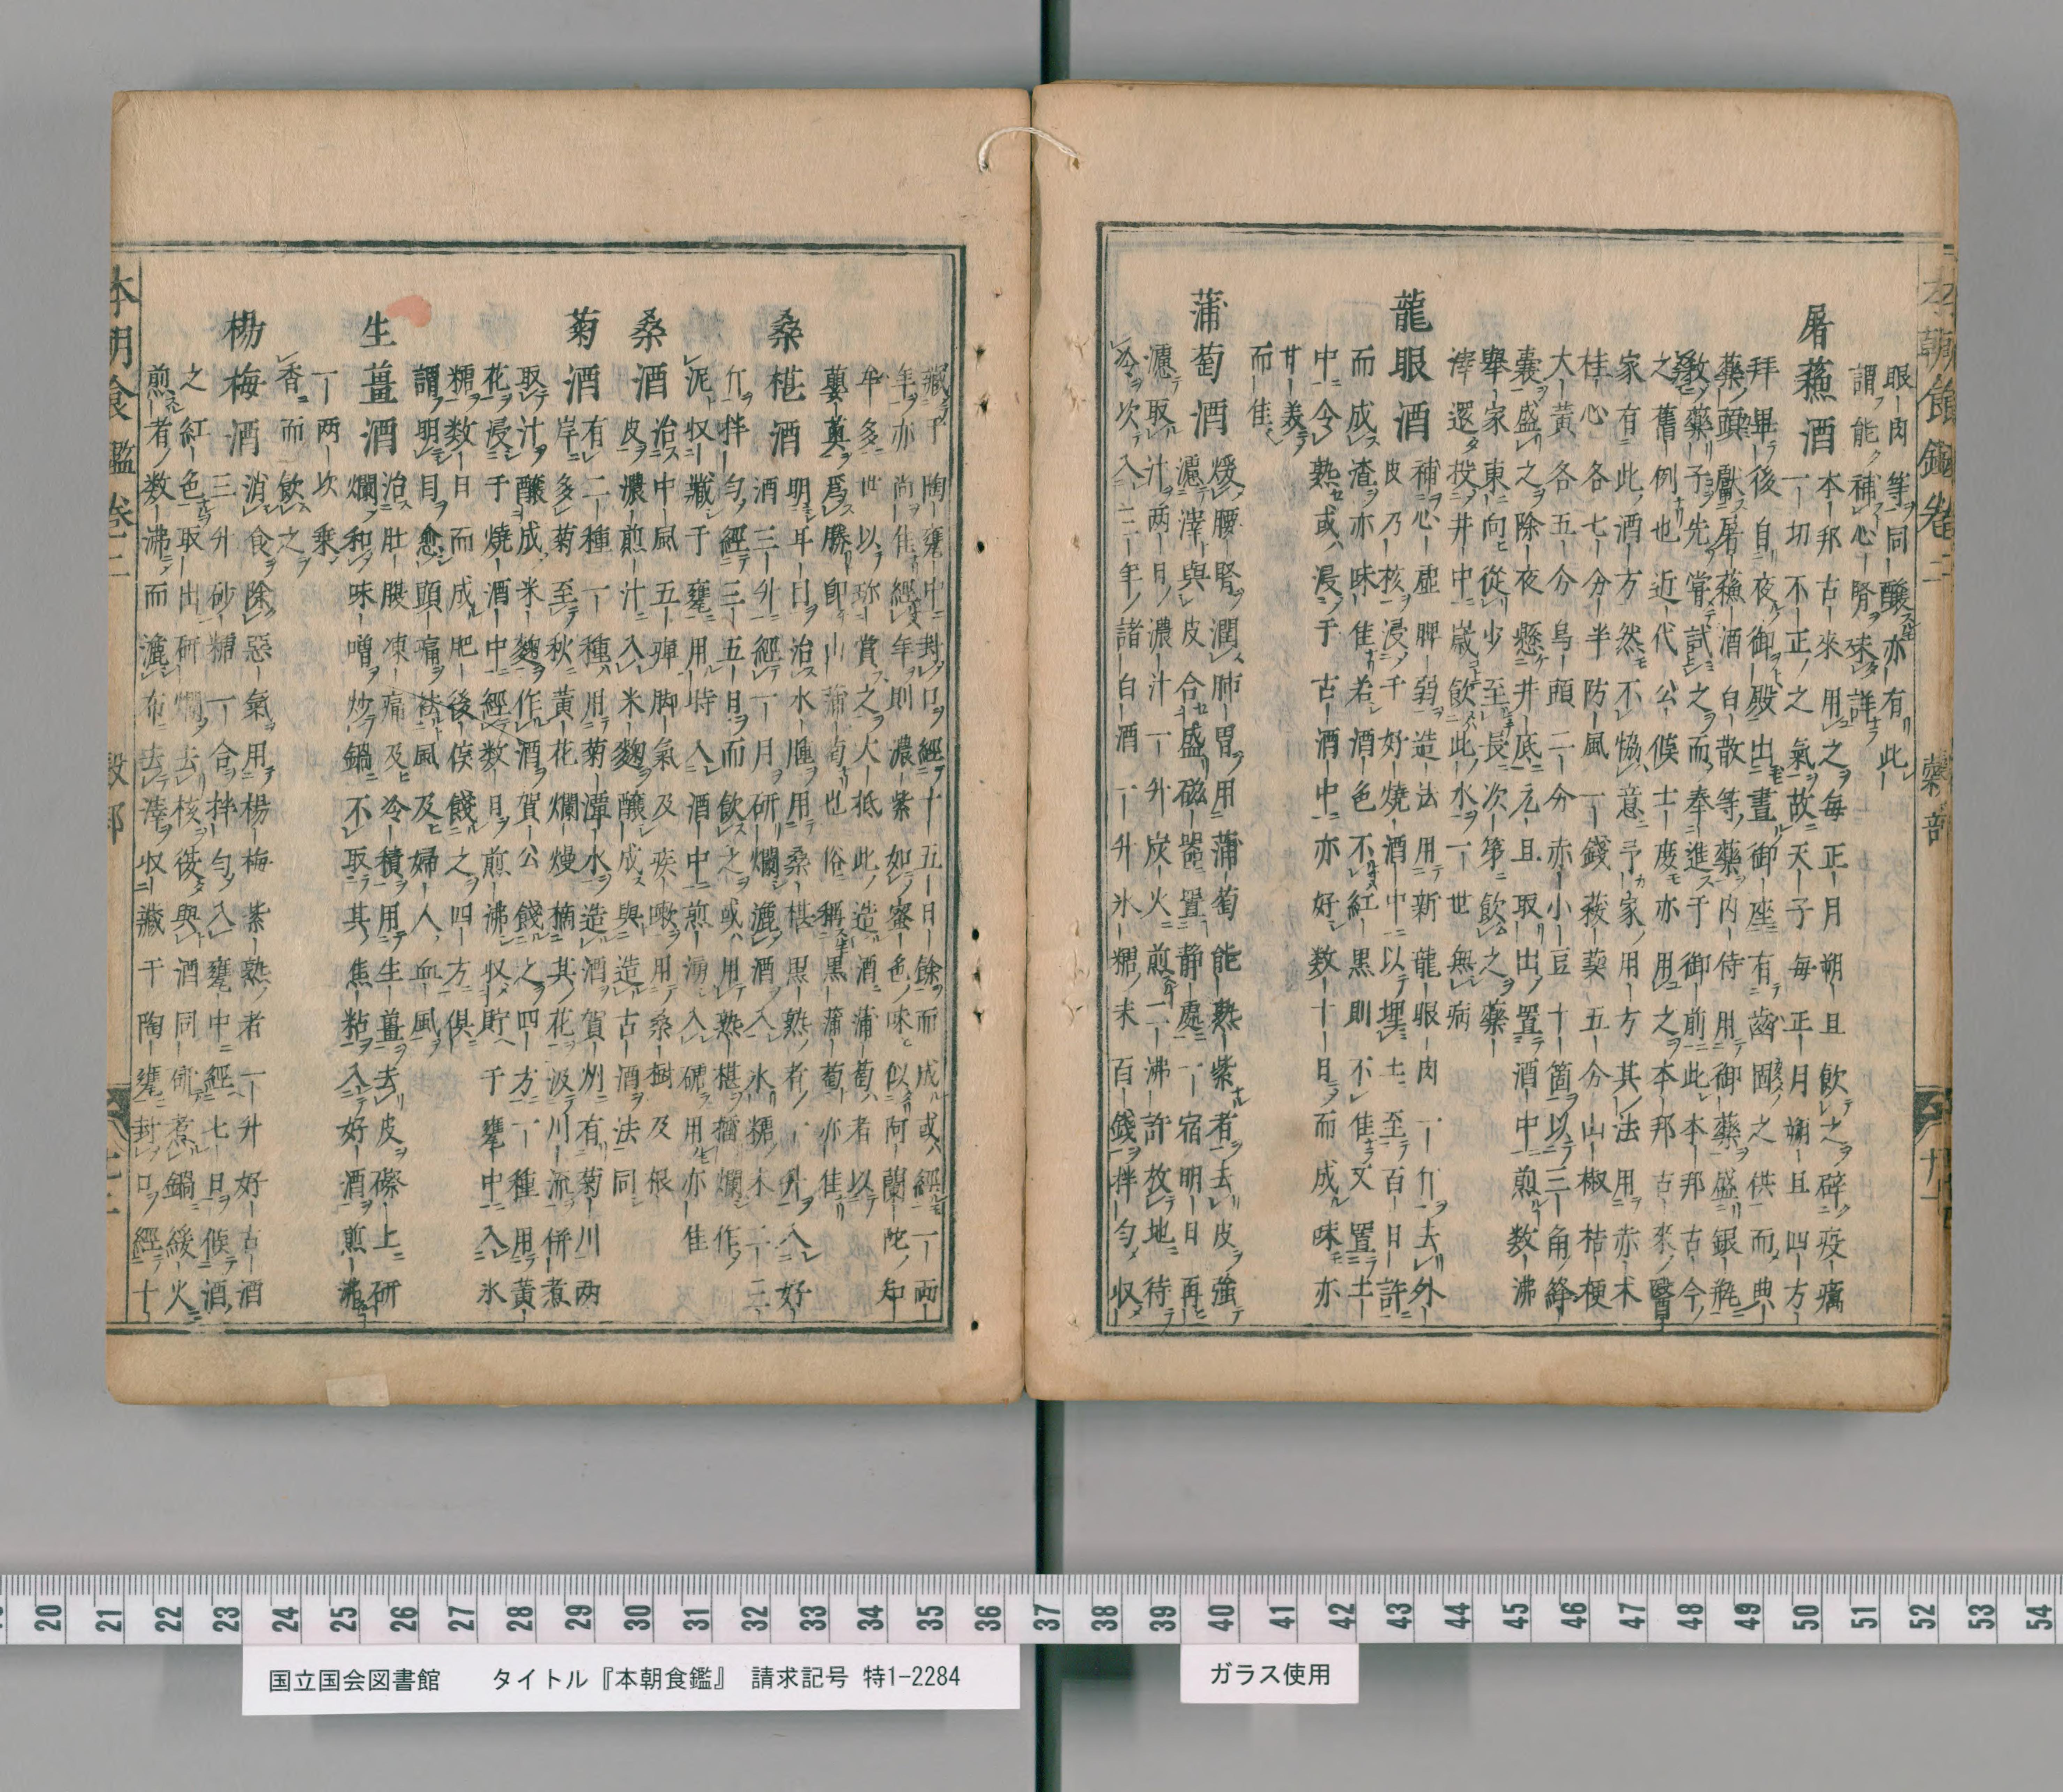 本朝食鑑卷二 穀部
眼肉等同釀亦有此
謂能補心腎味詳
屠蘓酒 本邦古來用之每正月朔旦飲之碎疫癘
一切不正之氣故天子每正月朔旦四方
拜畢後自夜御殿出晝御座有齒固之供而典
藥頭獻屠蘓酒白散等藥内侍用御藥盛銀瓶
藥子先嘗試之而奉進于御前此本邦古今
之舊例也近代公候士庶亦用之本邦古來醫
家有此酒方然不恊意予家用方其法用赤木
桂心各七分半防風一錢菝葜五分山椒桔梗
大黄各五分烏頭二分赤小豆十箇以三角絳
囊盛之除夜懸井底元旦取出置酒中煎数沸
舉家東向從少至長次第飲之藥
滓還投井中歲飲此水一世無病
龍眼酒 補心虛脾弱造法用新龍眼肉一斤去外
皮乃核浸于好燒酒中以埋土至百日許
而成渣亦味佳若酒色不紅黒則不佳又置土
中令熟或浸于古酒中亦好数十日而成味亦
甘美
而佳
蒲萄酒 煖腰腎潤肺胃用蒲萄能熟紫者去皮強
漉滓與皮合盛磁噐置静處一宿明日再
漉取汁两日濃汁一升炭火煎二沸許放地待
冷次入三年諸白酒一升氷糖末百錢拌匀收
藏于陶甕中封口經十五日餘而成或經一两
年亦尚佳經年則濃紫如蜜色味似阿蘭陀知
牟多世以弥賞之大抵此造酒蒲萄者以
蘡薁爲勝即山蒲萄也俗稱黒蒲萄亦佳
桑椹酒 明耳目治水腫用桑椹黒熟者一升入好
酒三升經一月研爛漉酒入氷糖末二三
斤拌匀經三五日而飲之或用熟椹擂爛作
泥收藏于甕用時入酒中煎湧入碗用亦佳
桑酒 治中風五痹脚氣及痰嗽用桑樹及根
皮濃煎汁入米麹釀成與造古酒法同
菊酒 有二種一種用菊潭水造酒賀州有菊川两
岸多菊至秋黄花爛熳摘其花汲川流併煮
取汁釀成米麹作酒賀公餞之四方一種用黄
花浸于燒酒中經数日煎沸收貯于甕中入氷
糖数日而成肥後侯餞之四方俱
謂明目愈頭痛祛風及婦人血風
生薑酒 治肚腹凍痛及冷積用生薑去皮磔上研
爛和味噌炒鍋不取其焦粘入好酒煎沸
一两次乘
香而飲之
楊梅酒 消食除惡氣用楊梅紫熟者一升好古酒
三升砂糖一合拌匀入甕中經七日候酒
之紅色取出研爛去核後與酒同煮鍋緩火
煎者数沸而漉布去滓收藏于陶甕封口經十
本朝食鑑卷二 穀部
20 21 22 23 24 25 26 27 28 29 30 31 32 33 34 35 36 37 38 39 40 41 42 43 44 45 46 47 48 49 50 51 52 53 54
国立国会図書館 タイトル『本朝食鑑』 請求記号 特1-2284
ガラス使用